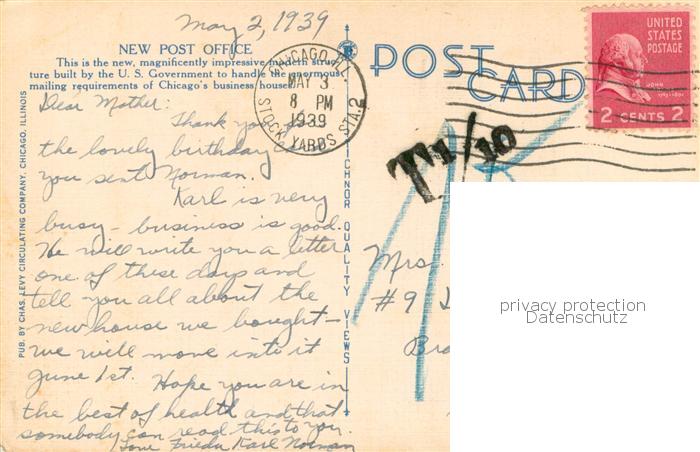 May 2, 1939
NEW POST OFFICE
This is the new, magnificently impressive modern struc-
ture built by the U. S. Government to handle the enormous
mailing requirements of Chicago's business houses.
Dear Mother:
Thank you for
the lovely birthday
you sent Norman.
Karl is very
busy - business is good.
He will write you a letter
one of these days and
tell you all about the
new house we bought -
we will move into it
June 1st. Hope you are in
the best of health and that
somebody can read this to you.
Love Frieda Karl Norman
PUB. BY CHAS. LEVY CIRCULATING COMPANY, CHICAGO, ILLINOIS
CHICAGO, ILL.
MAY 3
8 PM
1939
STOCK YARDS STA. 2
ICHNOR QUALITY VIEWS
POST
CARD
UNITED
STATES
POSTAGE
JOHN
2 CENTS 2
T 1/10
Mrs.
#9
privacy protection
Datenschutz